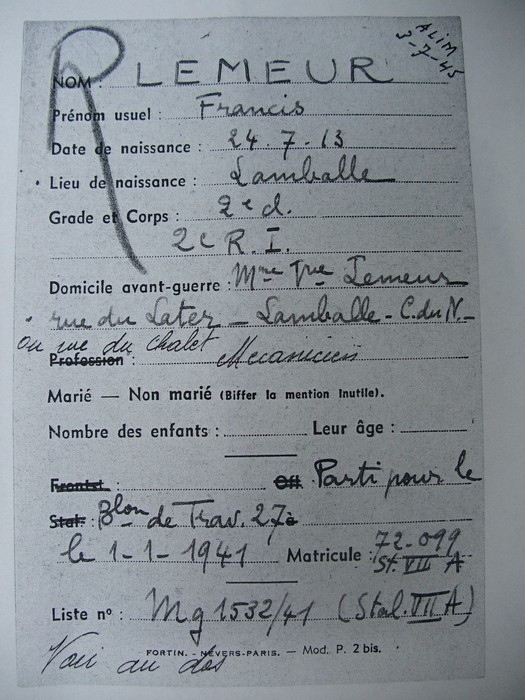 ALIM
3-7-45
R
NOM : LEMEUR
Prénom usuel : Francis
Date de naissance : 24.7.13
Lieu de naissance : Lamballe
Grade et Corps : 2e cl.
2e R.I.
Domicile avant-guerre : Mme Vve Lemeur
rue du Latez - Lamballe - C.du N.-
ou rue du chalet
Profession : Mecanicien
Marié — Non marié (Biffer la mention inutile).
Nombre des enfants : Leur âge :
Frontst : Off. Parti pour le
Stal : Blon de Trav. 27è
le 1-1-1941 Matricule : 72-099
St. VII A
Liste n° : Mg 1532/41 (Stal. VII A)
FORTIN. - NEVERS-PARIS. — Mod. P. 2 bis.
Voir au dos